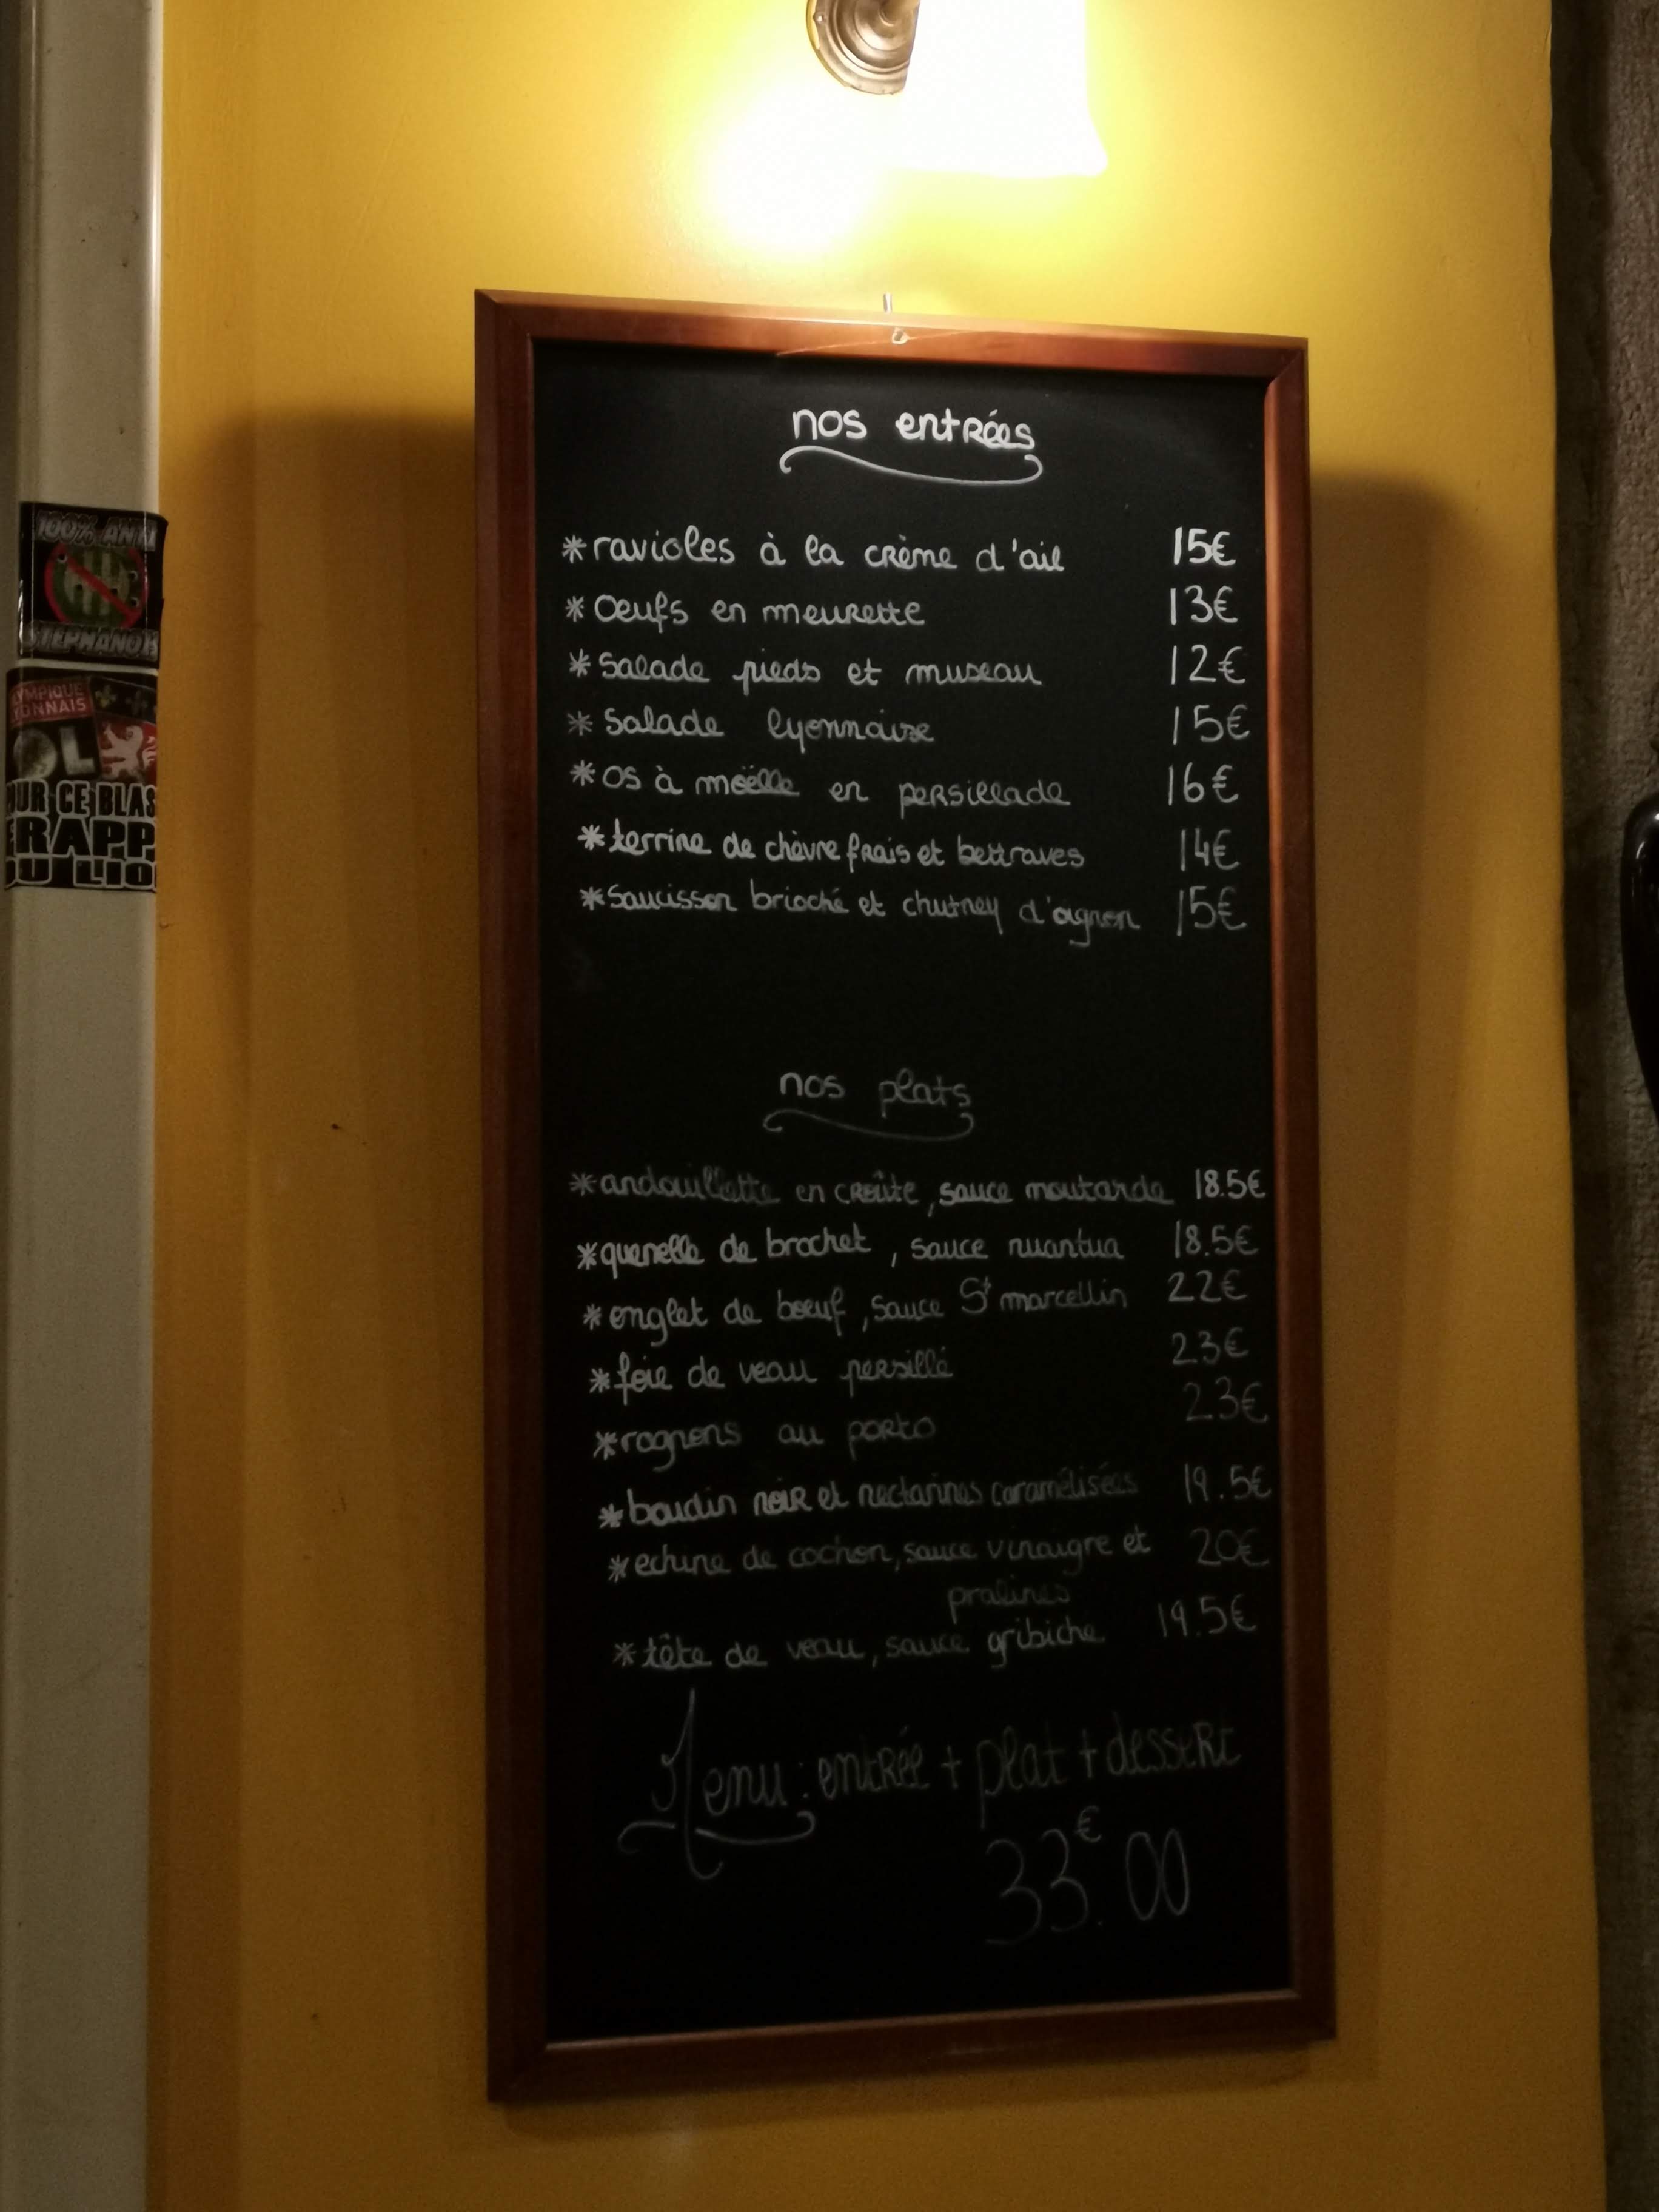 nos entrées
*ravioles à la crème d'ail 15€
*Oeufs en meurette 13€
*Salade pieds et museau 12€
*Salade lyonnaise 15€
*os à moëlle en persillade 16€
*terrine de chèvre frais et bettraves 14€
*Saucisson brioché et chutney d'oignon 15€
nos plats
*andouillette en croûte, sauce moutarde 18.5€
*quenelle de brochet, sauce nuantua 18.5€
*onglet de boeuf, sauce St marcellin 22€
*foie de veau persillé 23€
*rognons au porto 23€
*boudin noir et nectarines caramélisées 19.5€
*echine de cochon, sauce vinaigre et 20€
pralines
*tête de veau, sauce gribiche 19.5€
Menu: entrée + plat + dessert
33.€00
100% ANTI
STEPHANOIS
YMPIQUE
YONNAIS
OL
OUR CE BLAS
RAPP
OU LIO